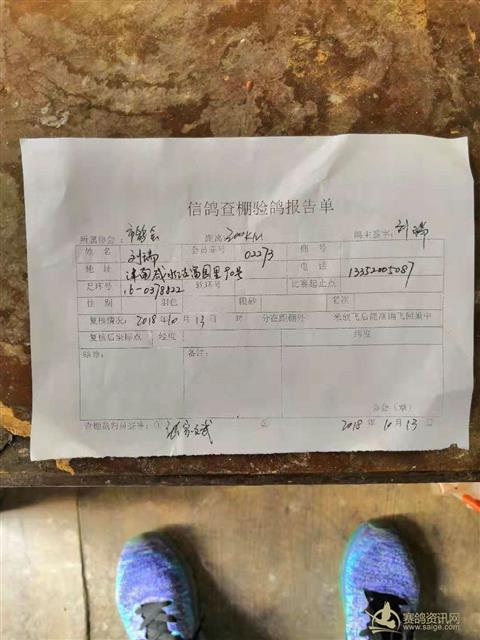 信鸽查棚验鸽报告单
所属协会: 市鸽会 距离 300KM 鸽主签字: 刘瑞
姓名 刘瑞 会员证号 02273 棚号
地址 津南咸水沽富国里 电话 13352005087
足环号 16-0378822 转环号 比赛起止点
性别 羽色 眼砂 名次
复核情况: 2018年10月13日 时 分在距棚外 米放飞后能准确飞回巢中
复核后坐标点 经度 纬度
结论: 备注:
分会(章)
查棚裁判员签字: ① 张家斌 ② 2018年10月13日
赛鸽资讯网
www.saige.com